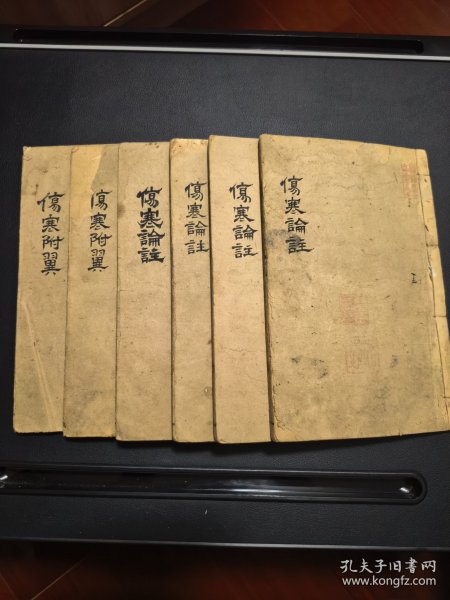 傷寒論註
傷寒論註
傷寒論註
傷寒論註
傷寒附翼
傷寒附翼
孔夫子旧书网
www.kongfz.com